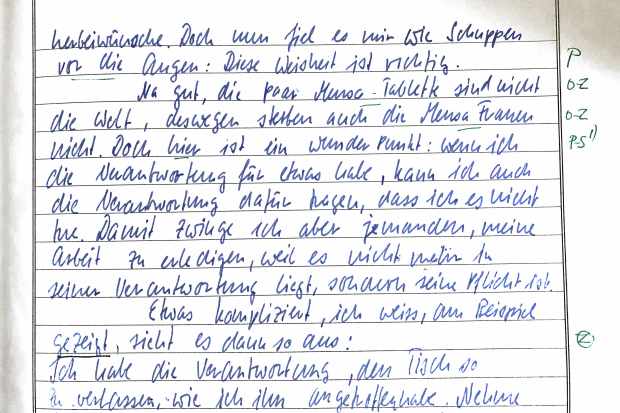 herbeiwünsche. Doch nun fiel es mir wie Schuppen
vor die Augen: Diese Weisheit ist richtig. P
Na gut, die paar Mensa-Tablette sind nicht o-Z
die Welt, deswegen sterben auch die Mensa Frauen o-Z
nicht. Doch hier ist ein wunder Punkt: wenn ich P-S 1)
die Verantwortung für etwas habe, kann ich auch
die Verantwortung dafür tragen, dass ich es nicht
tue. Damit zwinge ich aber jemanden, meine
Arbeit zu erledigen, weil es nicht mehr in
seiner Verantwortung liegt, sondern seine Pflicht ist.
Etwas kompliziert, ich weiss, am Beispiel
gezeigt, sieht es dann so aus: Z
Ich habe die Verantwortung, den Tisch so
zu verlassen, wie ich ihn angetroffen habe. Nehme